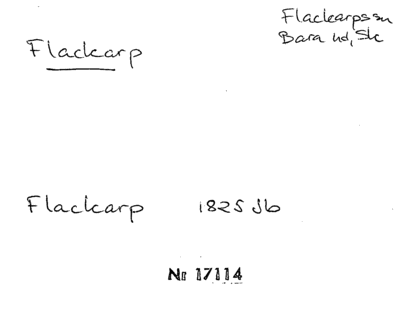 Flackarp
Flackarps sn
Bara hd, Sk
Flackarp 1825 Jb
Nr 17114